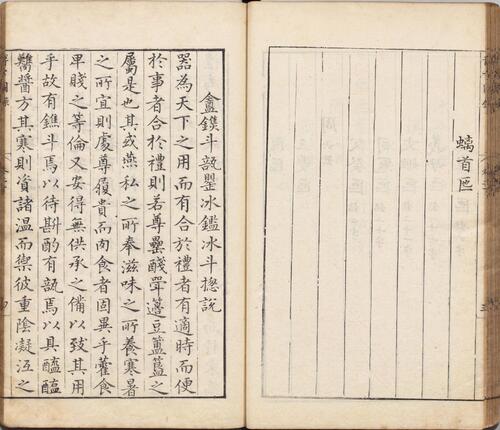 螭首匜
盦鐎斗瓿罌冰鑑冰斗總說
器為天下之用而有合於禮者有適時而便
於事者合於禮則若尊罍醆斝籩豆簠簋之
屬是也其或燕私之所奉滋味之所養寒暑
之所宜則處尊履貴而肉食者固異乎藿食
卑賤之等倫又安得無供承之備以致其用
乎故有鐎斗焉以待斟酌有瓿焉以具醯醢
醬方其寒則資諸溫而禦彼重陰凝沍之